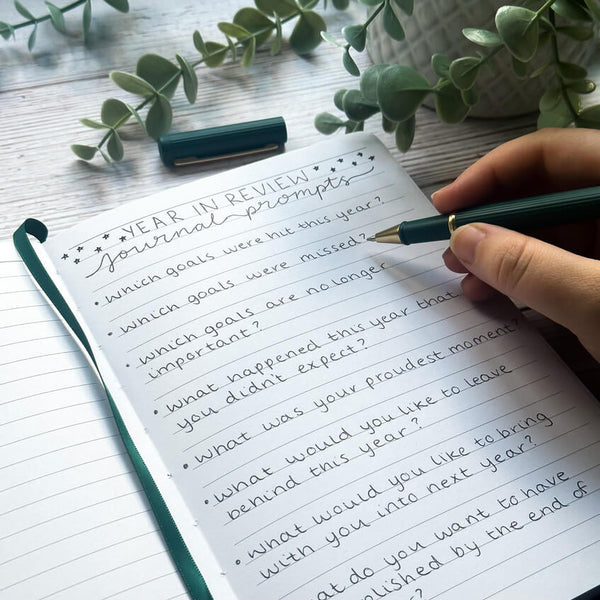 YEAR IN REVIEW
journal prompts
• which goals were hit this year?
• which goals were missed?
• which goals are no longer
important?
• what happened this year that
you didn't expect?
• what was your proudest moment?
• what would you like to leave
behind this year?
• what would you like to bring
with you into next year?
do you want to have
by the end of
?